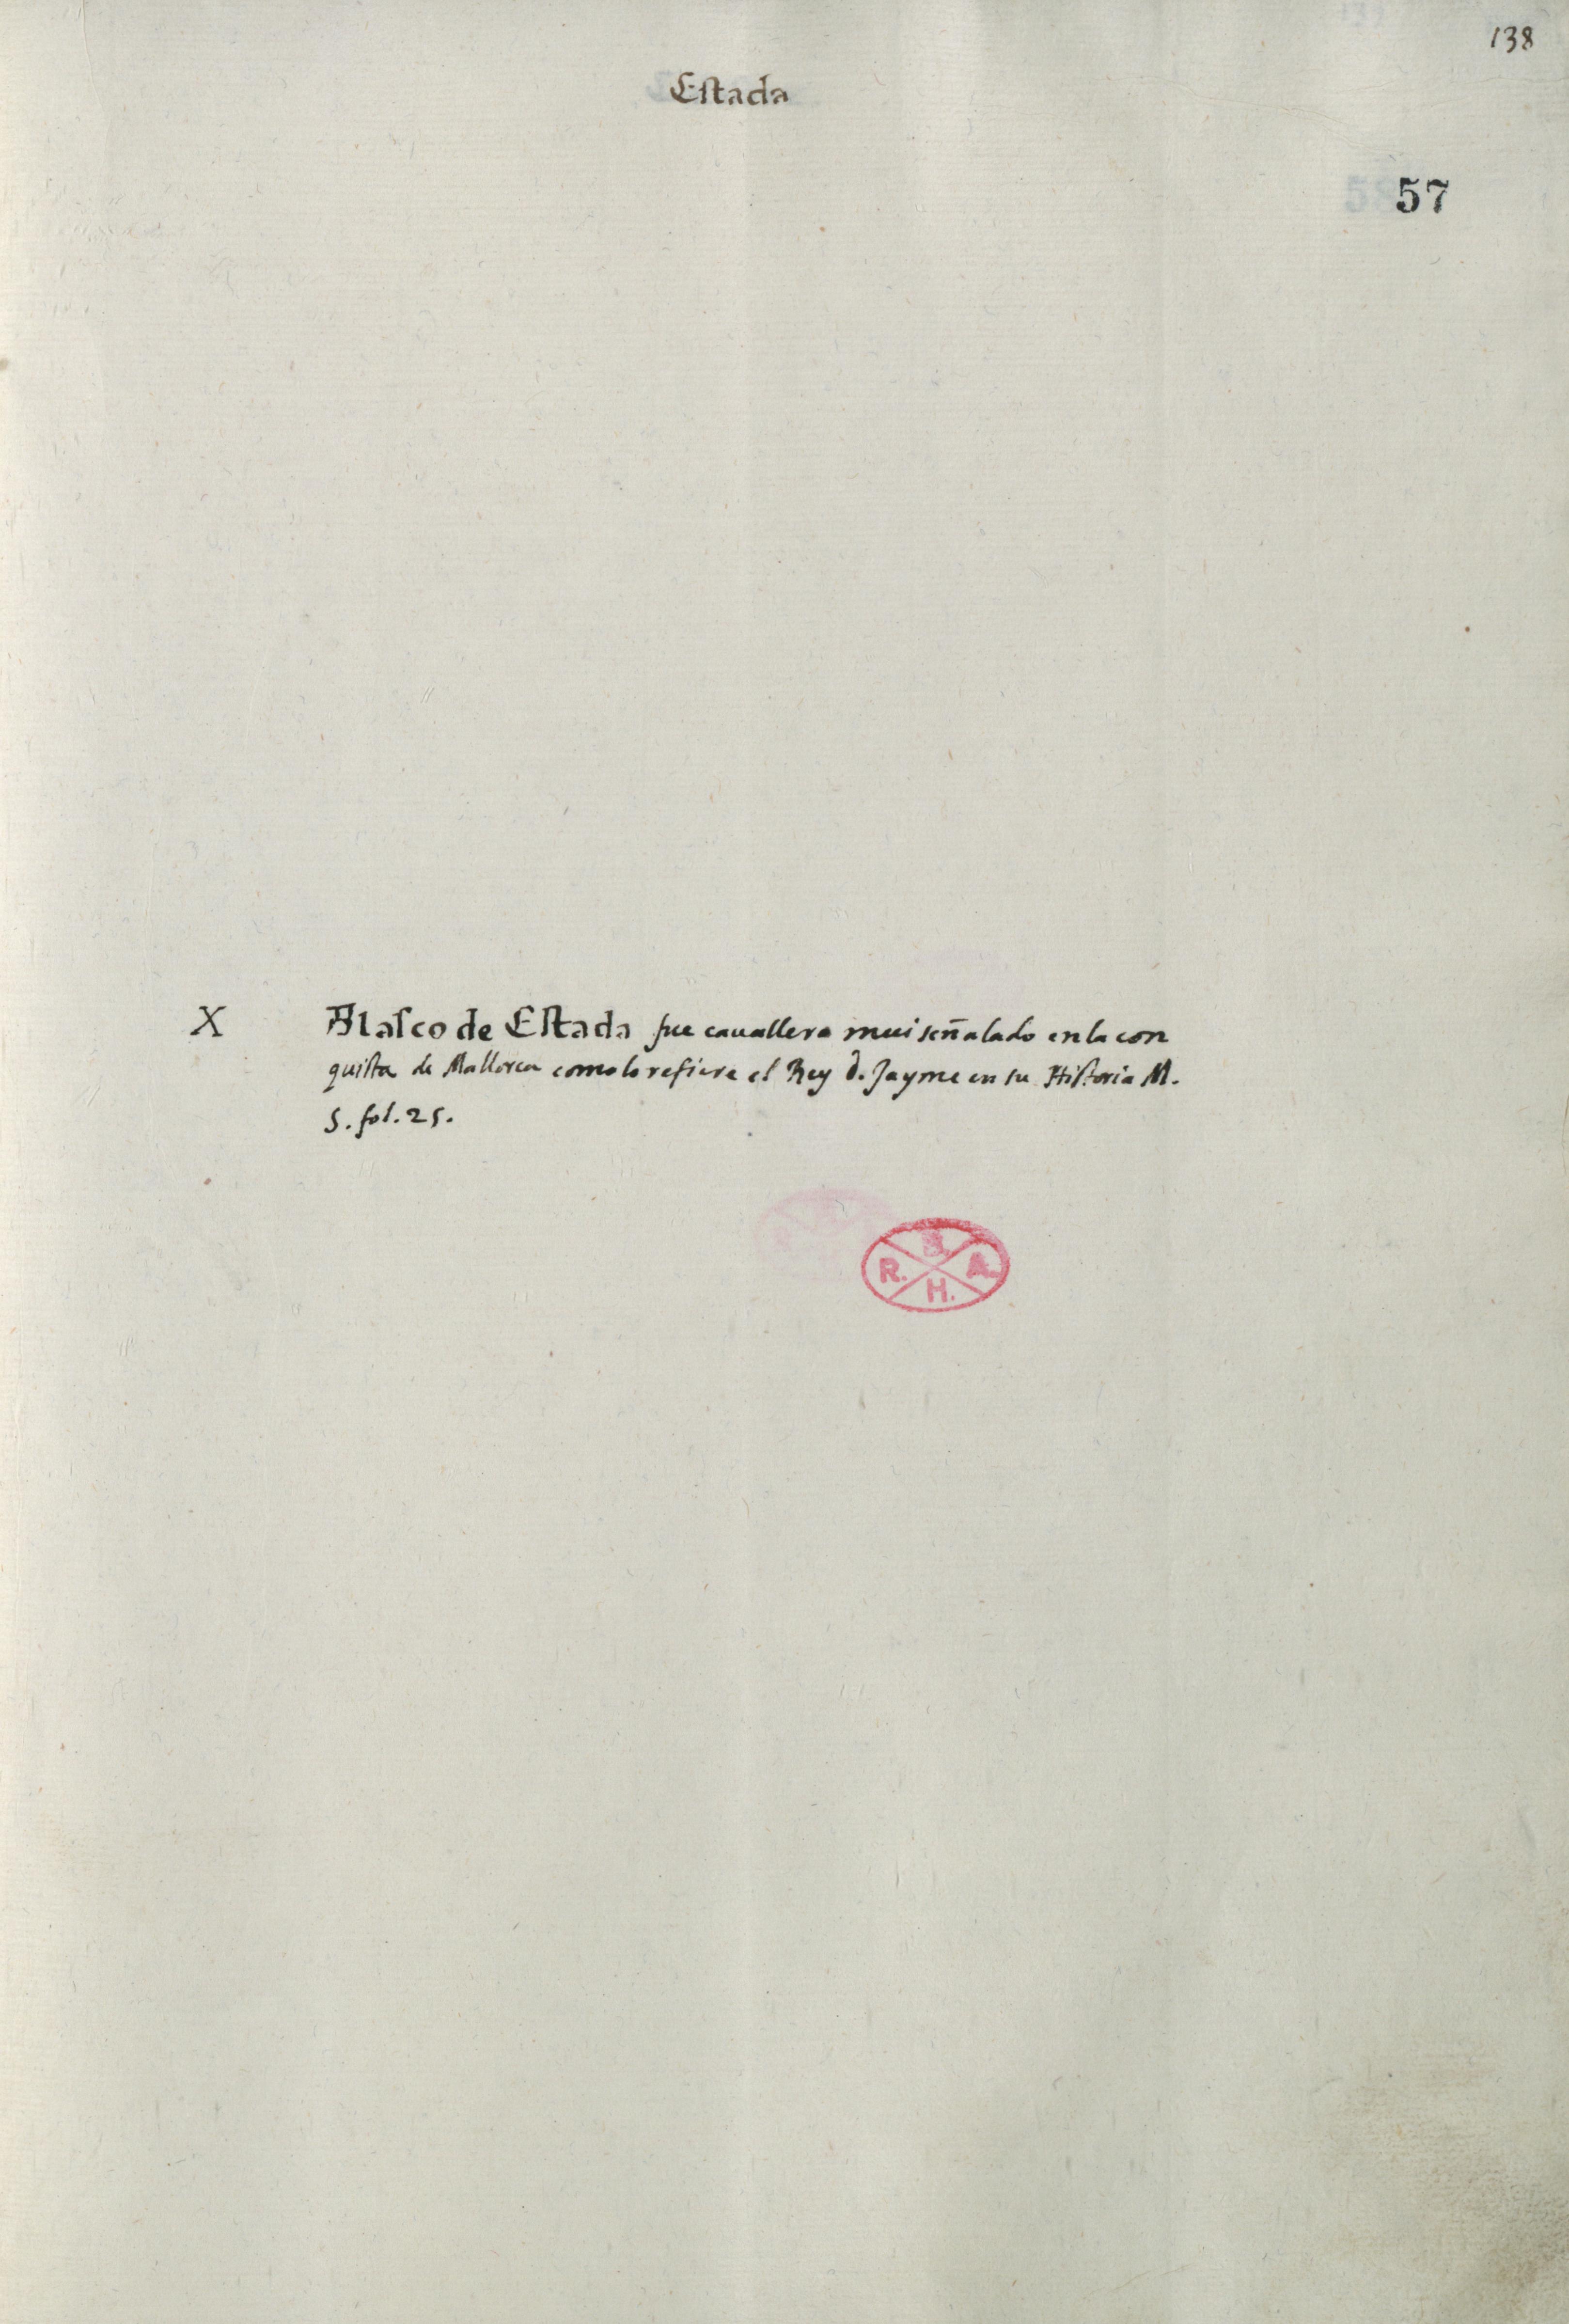 138
Estada
57
X Blasco de Estada fue cauallero mui señalado en la con
quista de Mallorca como lo refiere el Rey d. Jayme en su Historia M.
S. fol. 25.
B.
R. A.
H.